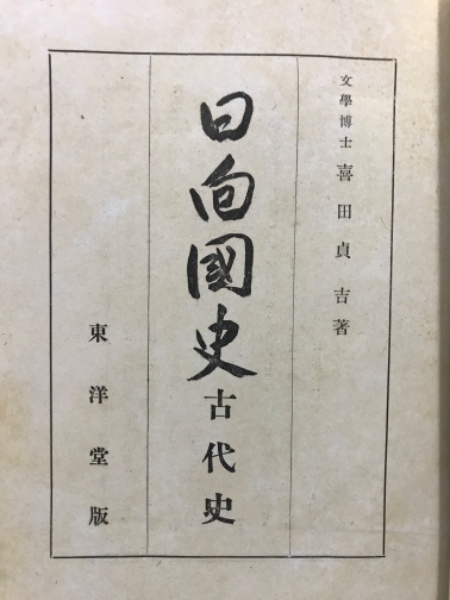 文學博士 喜田貞吉著
日向國史 古代史
東洋堂版